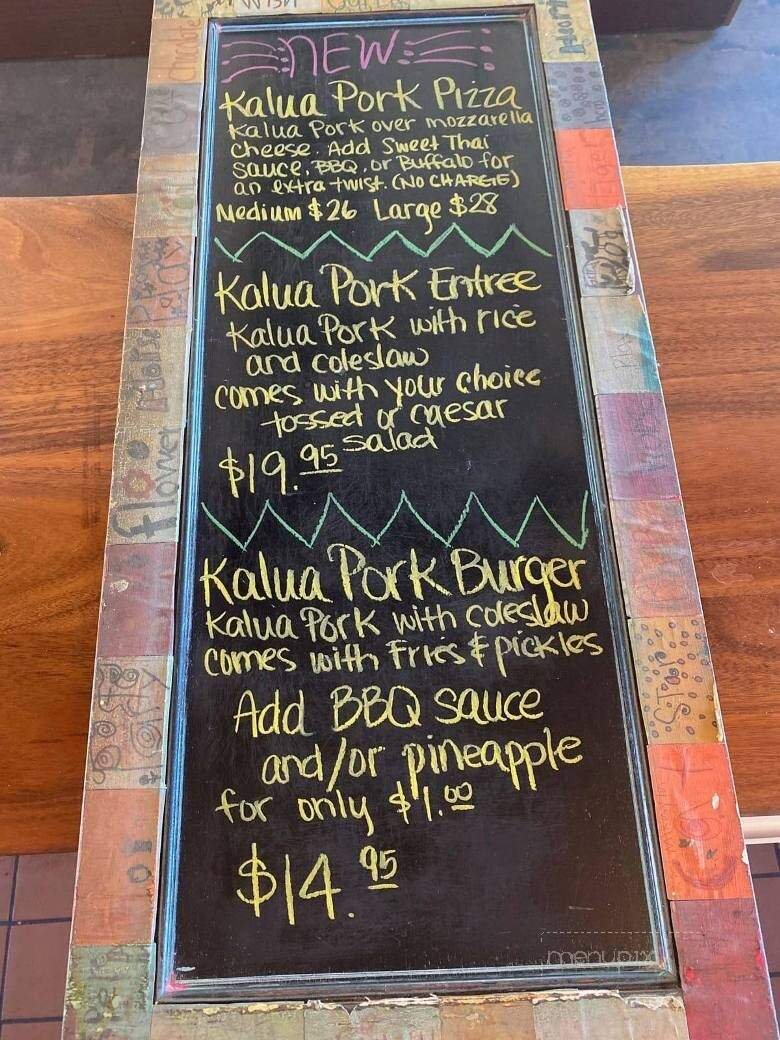 NEW
Kalua Pork Pizza
Kalua Pork over mozzarella
Cheese. Add Sweet Thai
Sauce, BBQ, or Buffalo for
an extra twist. (NO CHARGE)
Medium $26 Large $28
Kalua Pork Entree
Kalua Pork with rice
and coleslaw
comes with your choice
tossed or caesar
salad
$19.95
Kalua Pork Burger
Kalua Pork with coleslaw
comes with Fries & pickles
Add BBQ sauce
and/or pineapple
for only $1.00
$14.95
flower
Star
menupix